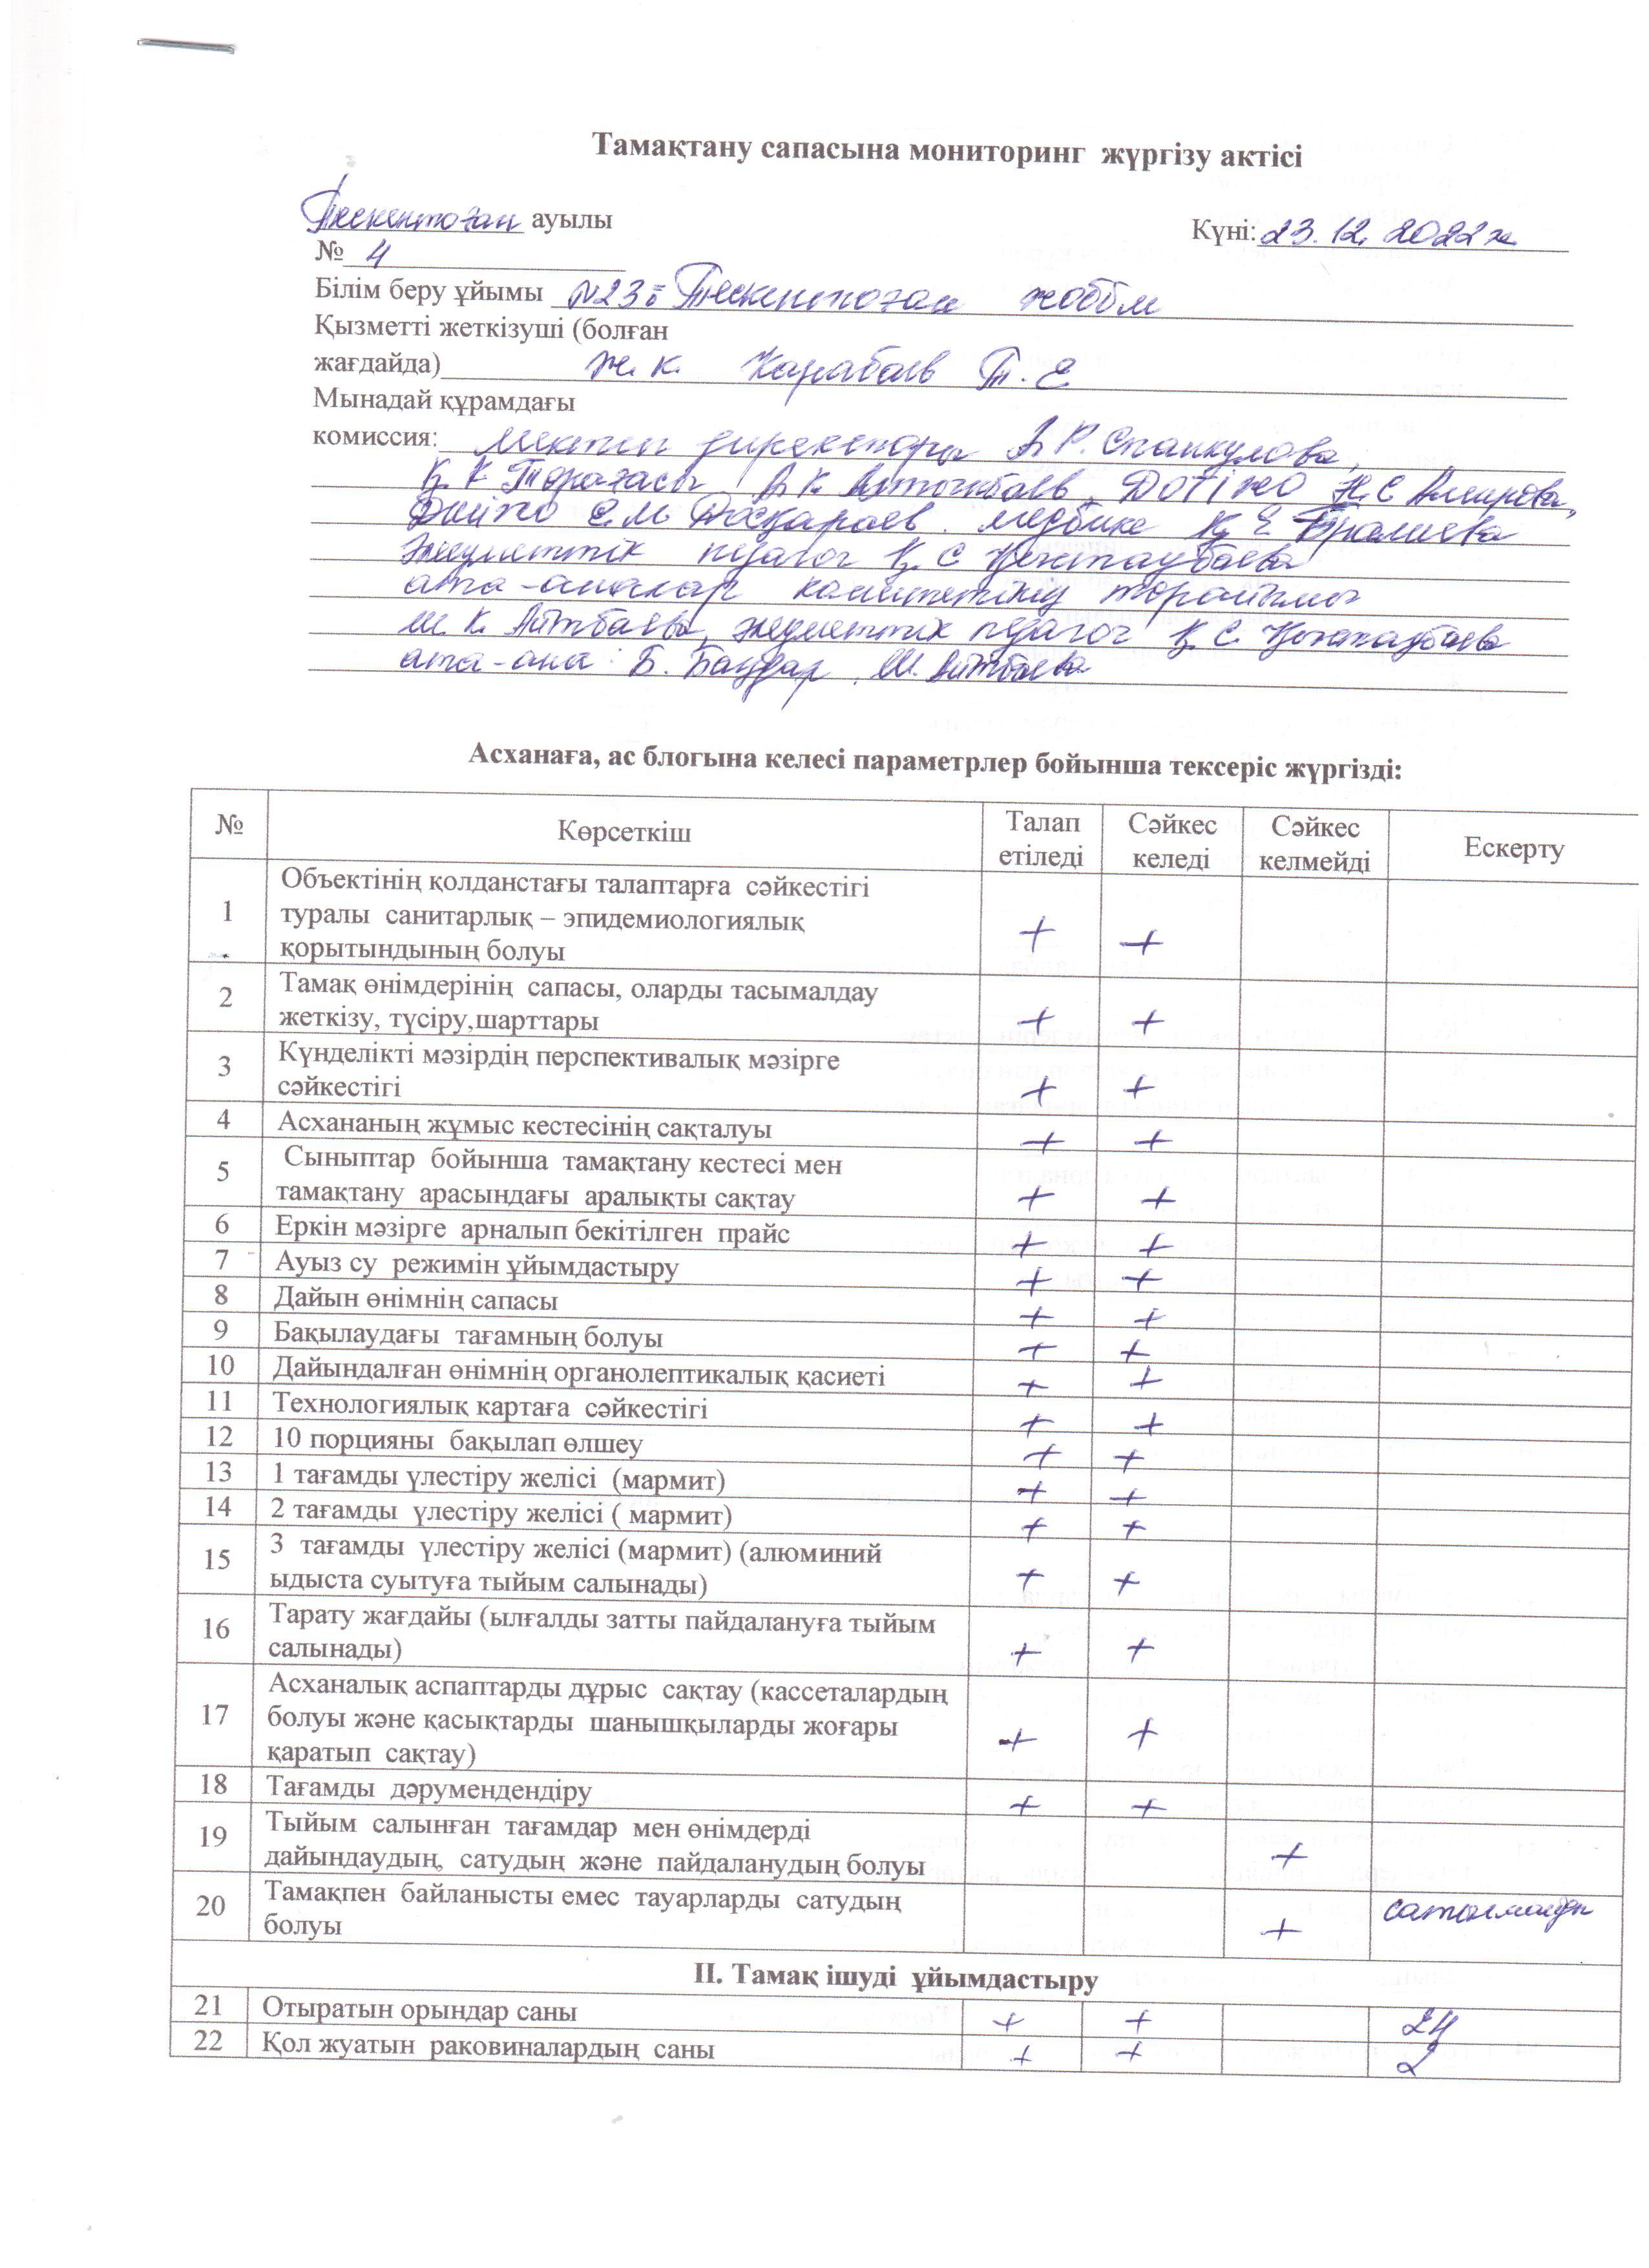 Тамақтану сапасына мониторинг жүргізу актісі
Тескентоған ауылы Күні: 23.12.2022ж
№ 4
Білім беру ұйымы №23 Тескентоған жоббм
Қызметті жеткізуші (болған
жағдайда) ж.к. Карабаев Т.Е
Мынадай құрамдағы
комиссия: мектеп директоры А.Р. Спанкулова,
Қ.К Төрағасы А.К. Алтынбаев, ДОТІЖО Н.С Амирова,
ДШІЖО Е.М Тасқараев. медбике Қ.Е
әлеуметтік педагог Қ.С Қонтаубаева
ата-аналар комитетінің төрайымы
Ш.К. Айтбаева, әлеуметтік педагог Қ.С. Қонтаубаева
ата-ана: Б. Баудар, Ш. Айтбаева
Асханаға, ас блогына келесі параметрлер бойынша тексеріс жүргізді:
№ Көрсеткіш Талап етіледі Сәйкес келеді Сәйкес келмейді Ескерту
1 Объектінің қолданстағы талаптарға сәйкестігі
туралы санитарлық – эпидемиологиялық
қорытындының болуы + +
2 Тамақ өнімдерінің сапасы, оларды тасымалдау
жеткізу, түсіру,шарттары + +
3 Күнделікті мәзірдің перспективалық мәзірге
сәйкестігі + +
4 Асхананың жұмыс кестесінің сақталуы + +
5 Сыныптар бойынша тамақтану кестесі мен
тамақтану арасындағы аралықты сақтау + +
6 Еркін мәзірге арналып бекітілген прайс + +
7 Ауыз су режимін ұйымдастыру + +
8 Дайын өнімнің сапасы + +
9 Бақылаудағы тағамның болуы + +
10 Дайындалған өнімнің органолептикалық қасиеті + +
11 Технологиялық картаға сәйкестігі + +
12 10 порцияны бақылап өлшеу + +
13 1 тағамды үлестіру желісі (мармит) + +
14 2 тағамды үлестіру желісі ( мармит) + +
15 3 тағамды үлестіру желісі (мармит) (алюминий
ыдыста суытуға тыйым салынады) + +
16 Тарату жағдайы (ылғалды затты пайдалануға тыйым
салынады) + +
17 Асханалық аспаптарды дұрыс сақтау (кассеталардың
болуы және қасықтарды шанышқыларды жоғары
қаратып сақтау) + +
18 Тағамды дәрумендендіру + +
19 Тыйым салынған тағамдар мен өнімдерді
дайындаудың, сатудың және пайдаланудың болуы +
20 Тамақпен байланысты емес тауарларды сатудың
болуы + сатылмайды
II. Тамақ ішуді ұйымдастыру
21 Отыратын орындар саны + + 24
22 Қол жуатын раковиналардың саны + + 2